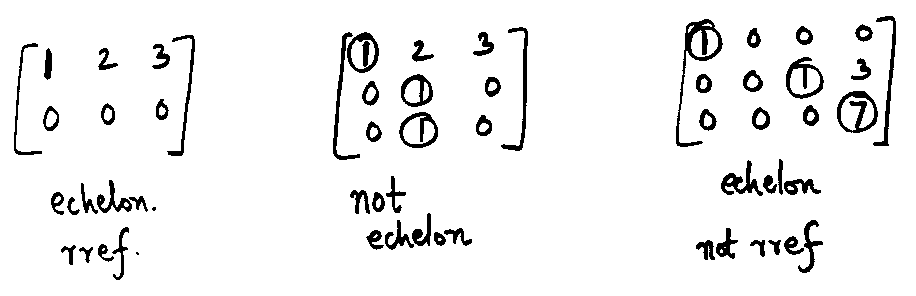 1 2 3
0 0 0
echelon.
rref.
1 2 3
0 1 0
0 1 0
not
echelon
1 0 0 0
0 0 1 3
0 0 0 7
echelon
not rref